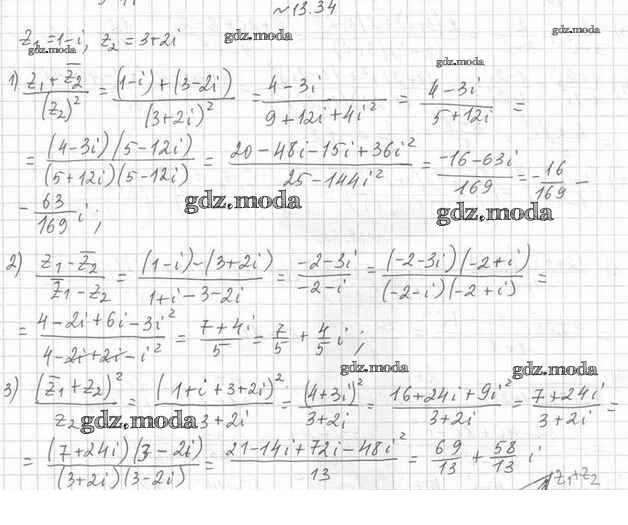 №13.34
z₁=1-i, z₂=3+2i
gdz.moda gdz.moda gdz.moda gdz.moda
1) (z₁+z̄₂)/(z₂)² = ((1-i)+(3-2i))/(3+2i)² = (4-3i)/(9+12i+4i²) = (4-3i)/(5+12i) =
= ((4-3i)(5-12i))/((5+12i)(5-12i)) = (20-48i-15i+36i²)/(25-144i²) = (-16-63i)/169 = -16/169 -
- 63/169 i;
gdz.moda gdz.moda
2) (z₁-z̄₂)/(z̄₁-z₂) = ((1-i)-(3+2i))/(1+i-3-2i) = (-2-3i)/(-2-i) = ((-2-3i)(-2+i))/((-2-i)(-2+i)) =
= (4-2i+6i-3i²)/(4-2i+2i-i²) = (7+4i)/5 = 7/5 + 4/5 i;
gdz.moda gdz.moda
3) (z̄₁+z₂)²/z₂ = (1+i+3+2i)²/(3+2i) = (4+3i)²/(3+2i) = (16+24i+9i²)/(3+2i) = (7+24i)/(3+2i) =
gdz.moda
= ((7+24i)(3-2i))/((3+2i)(3-2i)) = (21-14i+72i-48i²)/13 = 69/13 + 58/13 i
z₁+z₂